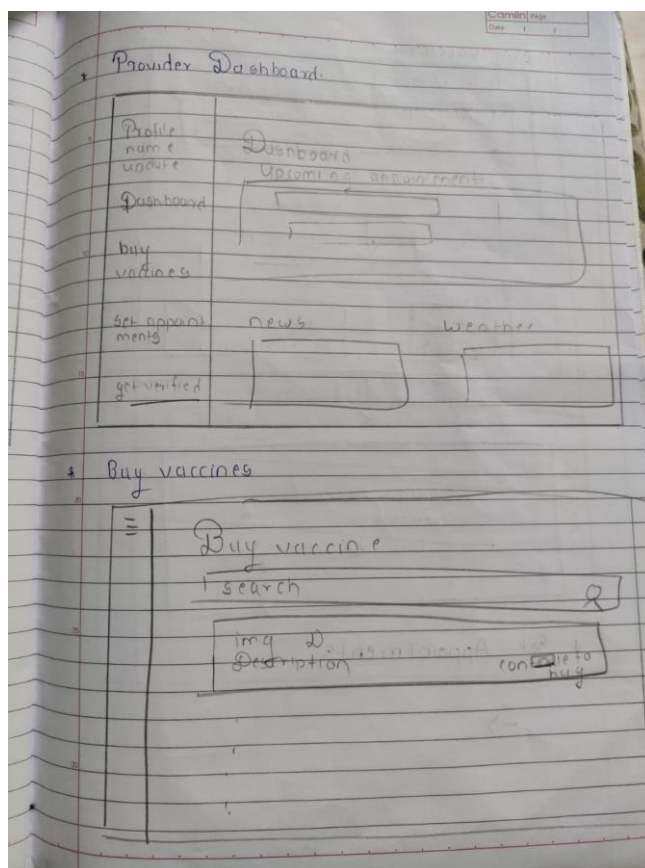 Camlin Page
Date / /
Provider Dashboard.
Profile
name
update
Dashboard
buy
vaccines
set appoint
ments
get verified
Dashboard
Upcoming appointments
news
weather
Buy vaccines
Buy vaccine
search
img D
Description
continue to
buy